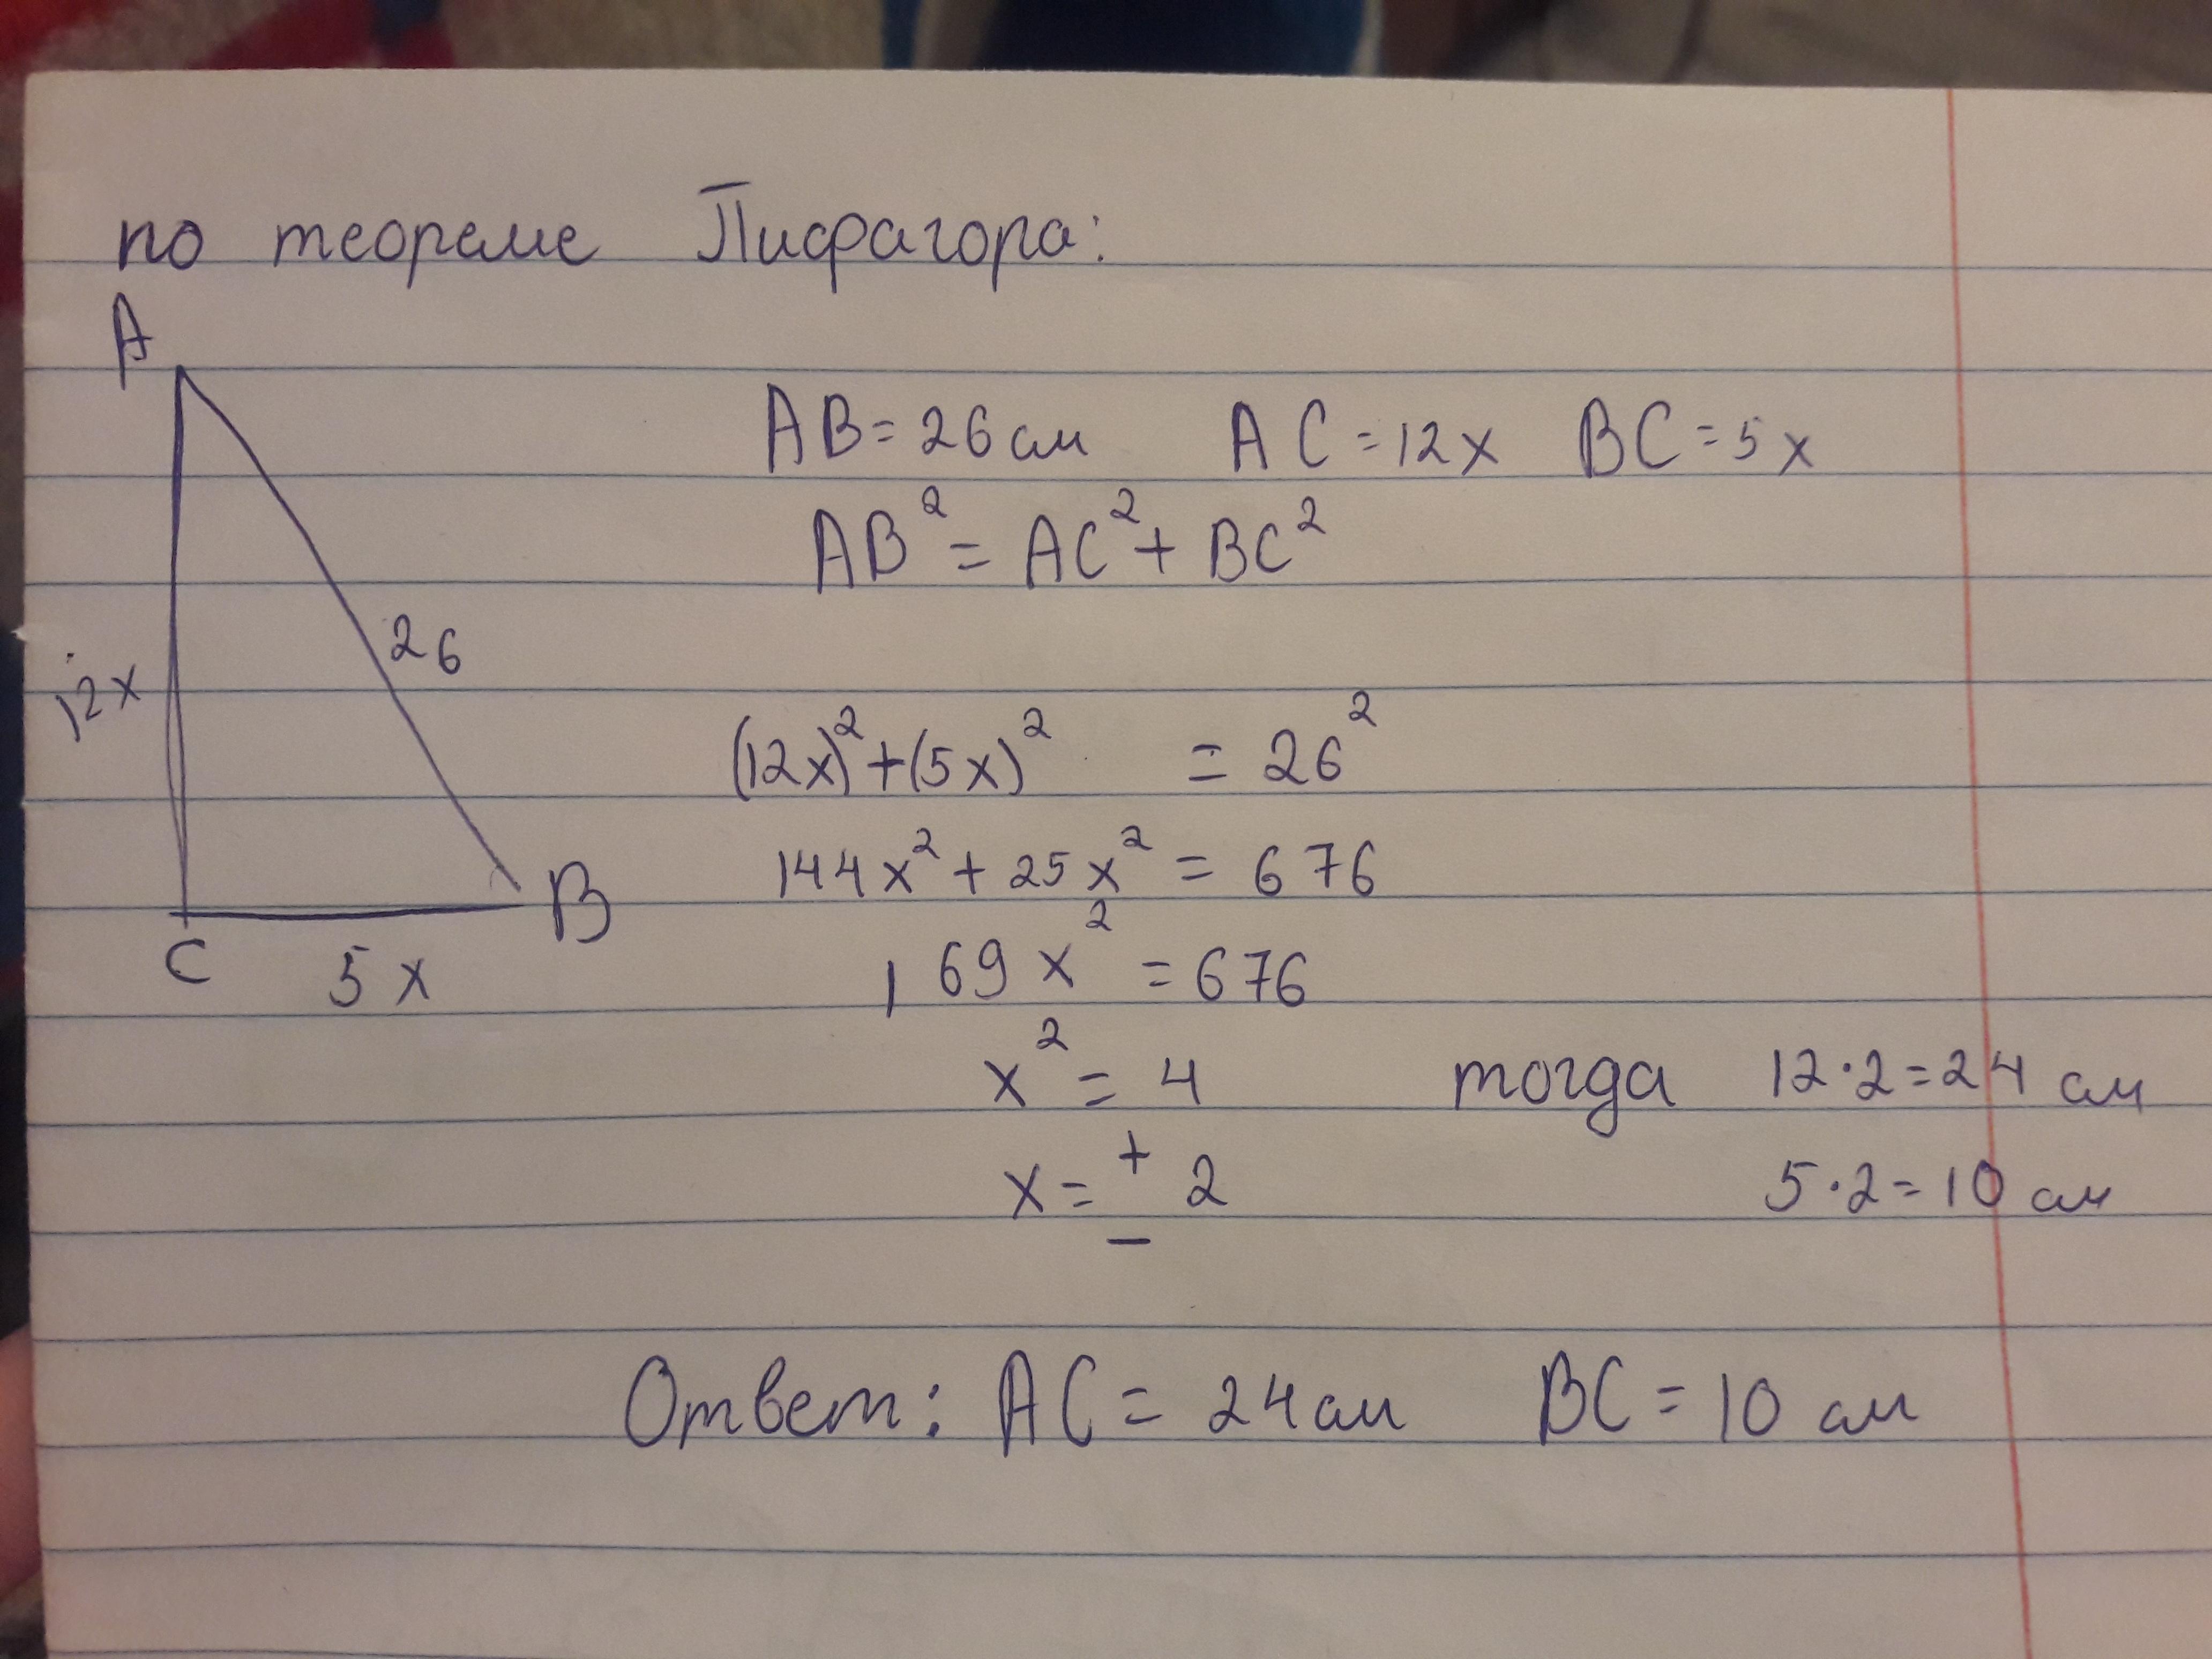 по теореме Писфагора:
A
AB = 26 см AC = 12x BC = 5x
AB² = AC² + BC²
26
12x
(12x)² + (5x)² = 26²
144x² + 25x² = 676
B
C
5x
169x² = 676
x² = 4 тогда 12·2=24 см
x = ± 2 5·2=10 см
Ответ: AC = 24 см BC = 10 см